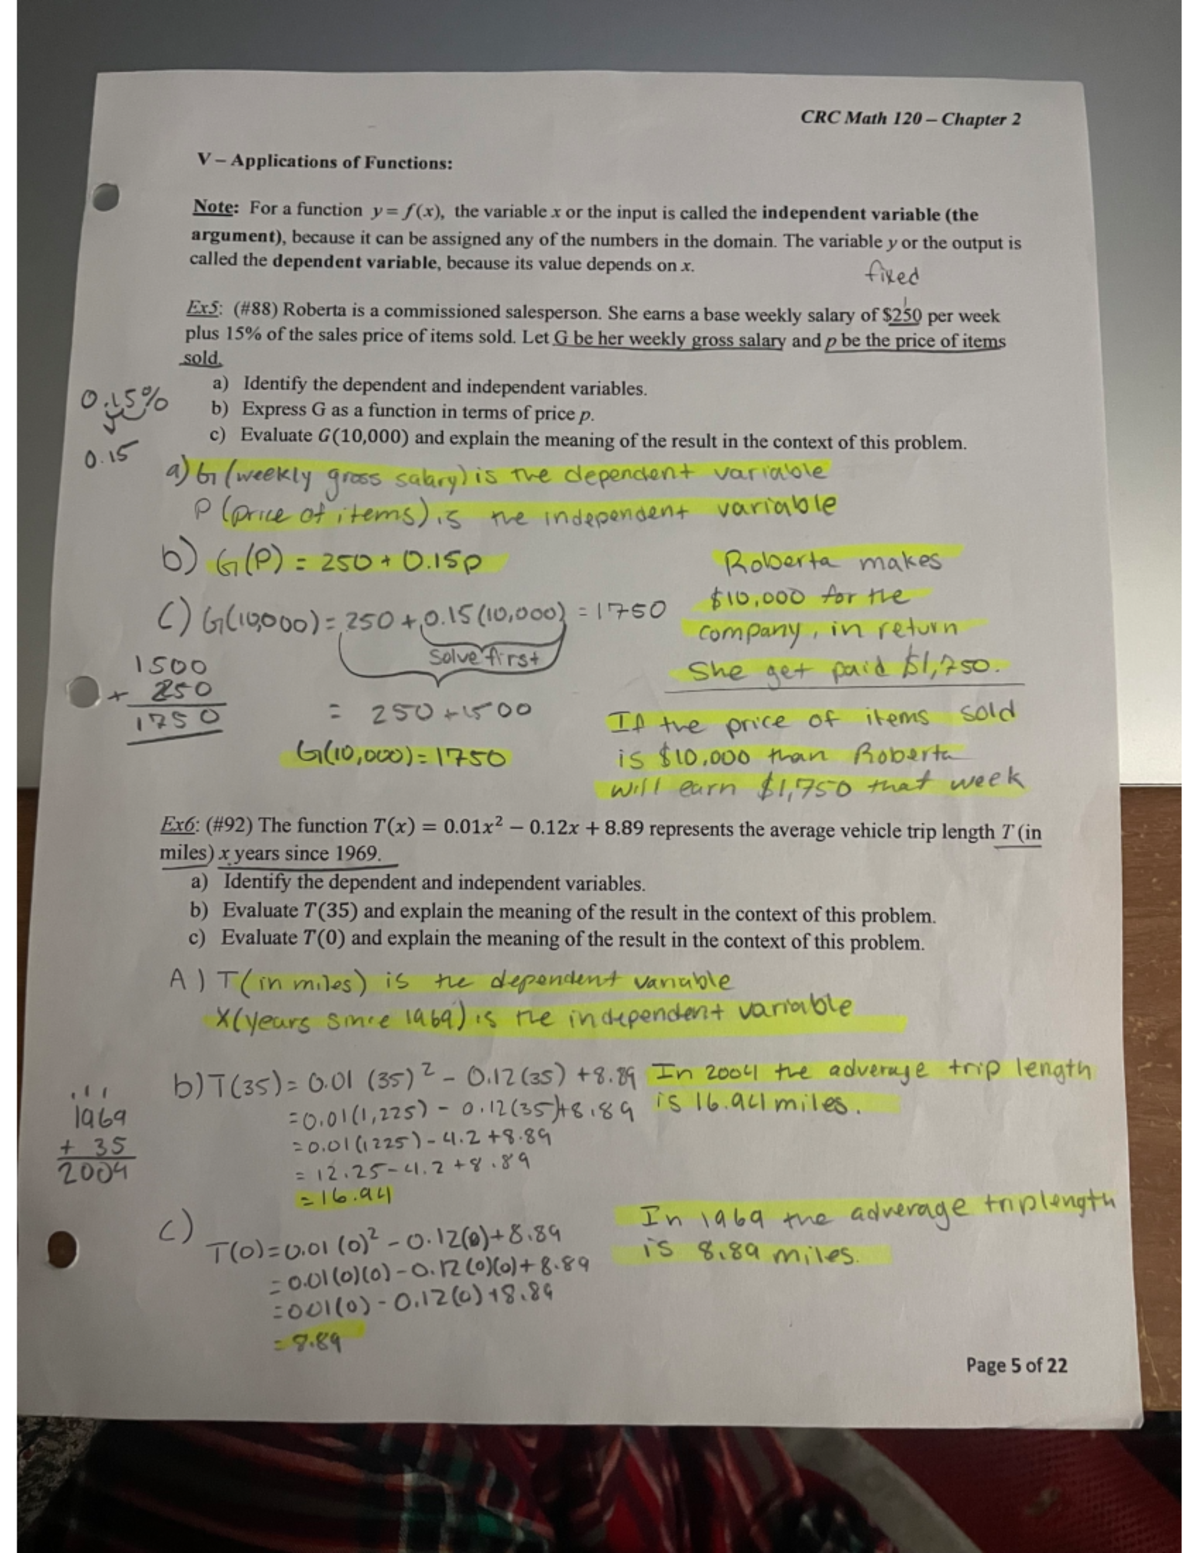 CRC Math 120 – Chapter 2
V – Applications of Functions:
Note: For a function y = f(x), the variable x or the input is called the independent variable (the
argument), because it can be assigned any of the numbers in the domain. The variable y or the output is
called the dependent variable, because its value depends on x.
fixed
Ex5: (#88) Roberta is a commissioned salesperson. She earns a base weekly salary of $250 per week
plus 15% of the sales price of items sold. Let G be her weekly gross salary and p be the price of items
sold.
a) Identify the dependent and independent variables.
b) Express G as a function in terms of price p.
c) Evaluate G(10,000) and explain the meaning of the result in the context of this problem.
0.15%
0.15
a) G (weekly gross salary) is the dependent variable
P (price of items) is the independent variable
b) G(P) = 250 + 0.15p
c) G(10,000) = 250 + 0.15(10,000) = 1750
Solve first
1500
+ 250
1750
= 250 + 1500
G(10,000) = 1750
Roberta makes
$10,000 for the
company, in return
She get paid $1,750.
If the price of items sold
is $10,000 than Roberta
will earn $1,750 that week
Ex6: (#92) The function T(x) = 0.01x² − 0.12x + 8.89 represents the average vehicle trip length T (in
miles) x years since 1969.
a) Identify the dependent and independent variables.
b) Evaluate T(35) and explain the meaning of the result in the context of this problem.
c) Evaluate T(0) and explain the meaning of the result in the context of this problem.
A) T (in miles) is the dependent variable
X (years since 1969) is the independent variable
b) T(35) = 0.01 (35)² - 0.12(35) + 8.89
= 0.01(1,225) - 0.12(35) + 8.89
= 0.01(1225) - 4.2 + 8.89
= 12.25 - 4.2 + 8.89
= 16.94
In 2004 the adverage trip length
is 16.94 miles.
1 1 1
1969
+ 35
2004
c)
T(0) = 0.01 (0)² - 0.12(0) + 8.89
= 0.01(0)(0) - 0.12(0)(0) + 8.89
= 001(0) - 0.12(0) + 8.89
= 8.89
In 1969 the adverage trip length
is 8.89 miles.
Page 5 of 22